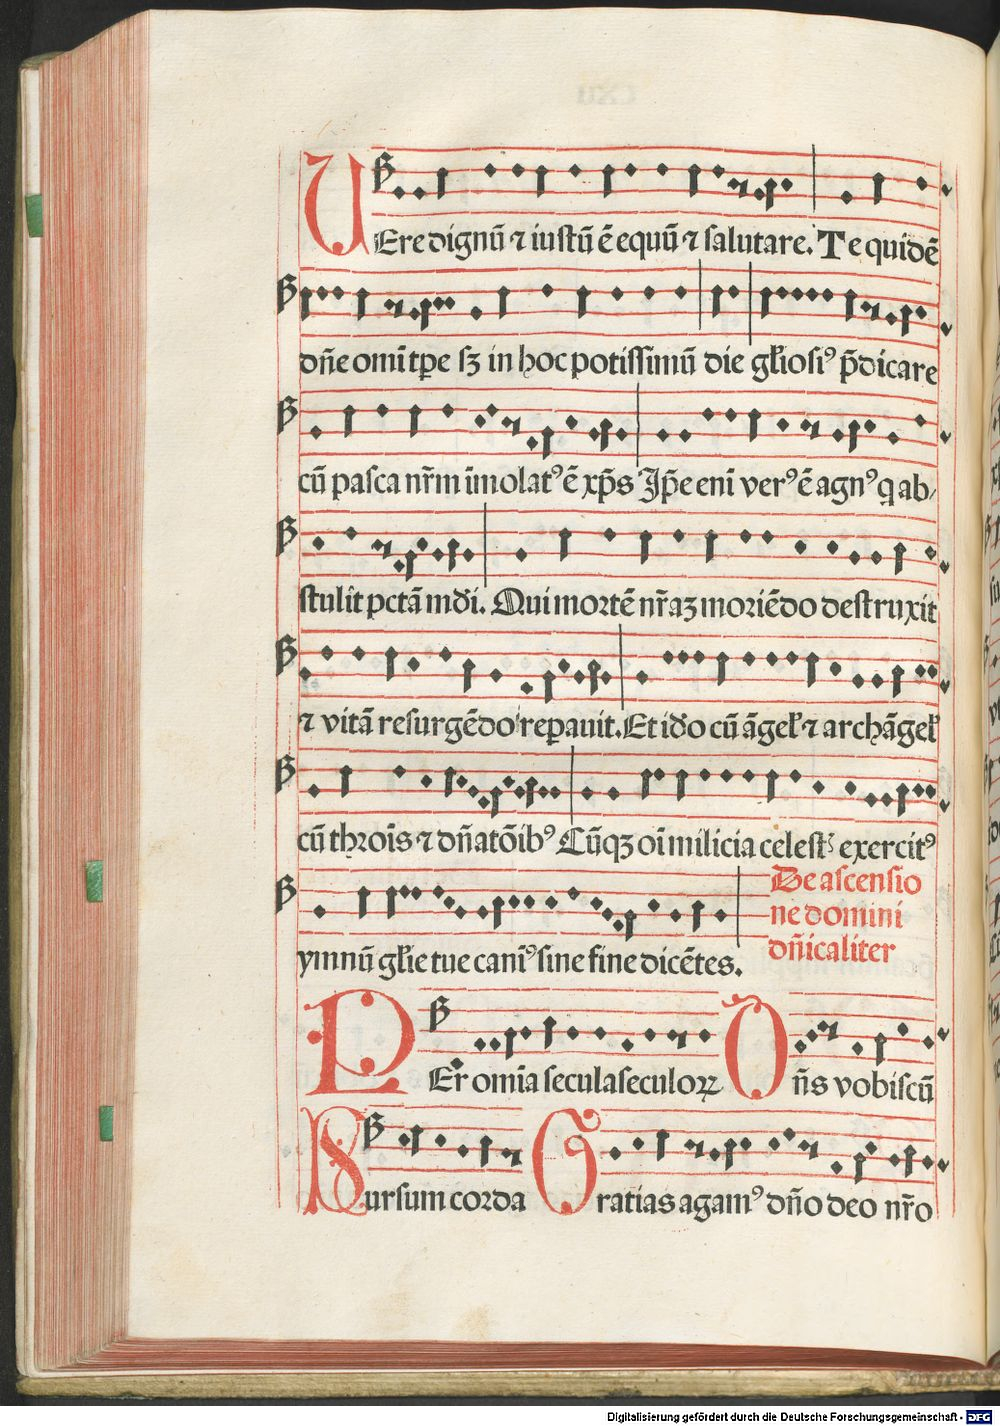 VEre dignū ⁊ iustū ē equū ⁊ salutare. Te quidē
dn̄e omī tp̄e sꝫ in hoc potissimū die gl̄iosiꝰ p̄dicare
cū pasca nr̄m īmolatꝰ ē xp̄s Ip̄e enī verꝰ ē agnꝰ q ab⸗
stulit pctā mūdi. Qui mortē nr̄aꝫ moriēdo destruxit
⁊ vitā resurgēdo repauit. Et iđo cū āgeł ⁊ archāgeł
cū throīs ⁊ dn̄atōibꝰ Cūqꝫ oī milicia celest exercitꝰ
ymnū gl̄ie tue canīꝰ sine fine dicētes.
De ascensio
ne domini
dn̄icaliter
PEr omīa secula seculoꝝ Dn̄s vobiscū
Sursum corda Gratias agamꝰ dn̄o deo nr̄o
Digitalisierung gefördert durch die Deutsche Forschungsgemeinschaft - DFG